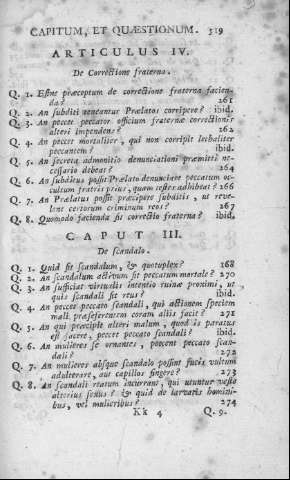 CAPITUM, ET QUÆSTIONUM. 519
ARTICULUS IV.
De Correctione fraterna.
Q. 1. Estne præceptum de correctione fraterna facien-
da? 261
Q. 2. An subditi teneantur Prælatos corripere? ibid.
Q. 3. An peccet peccator officium fraternæ correctionis
alteri impendens? 262
Q. 4. An peccet mortaliter, qui non corripit lethaliter
peccantem? ibid.
Q. 5. An secreta admonitio denunciationi præmitti ne-
cessario debeat? 264
Q. 6. An subditus possit Prælato denunciare peccatum oc-
cultum fratris prius, quam testes adhibeat? 266
Q. 7. An Prælatus possit præcipere subditis, ut reve-
lent certorum criminum reos? 267
Q. 8. Quomodo facienda sit correctio fraterna? ibid.
CAPUT III.
De scandalo.
Q. 1. Quid sit scandalum, & quotuplex? 168
Q. 2. An scandalum activum sit peccatum mortale? 270
Q. 3. An sufficiat virtualis intentio ruinæ proximi, ut
quis scandali sit reus? ibid.
Q. 4. An peccet peccato scandali, qui actionem speciem
mali præseferentem coram aliis facit? 271
Q. 5. An qui præcipit alteri malum, quod is paratus
est facere, peccet peccato scandali? ibid.
Q. 6. An mulieres se ornantes, peccent peccato scan-
dali? 272
Q. 7. An mulieres absque scandalo possint fucis vultum
adulterare, aut capillos fingere? 273
Q. 8. An scandali reatum incurrant, qui utuntur veste
alterius sexus? & quid de larvatis homini-
bus, vel mulieribus? 274
Kk 4 Q. 9.